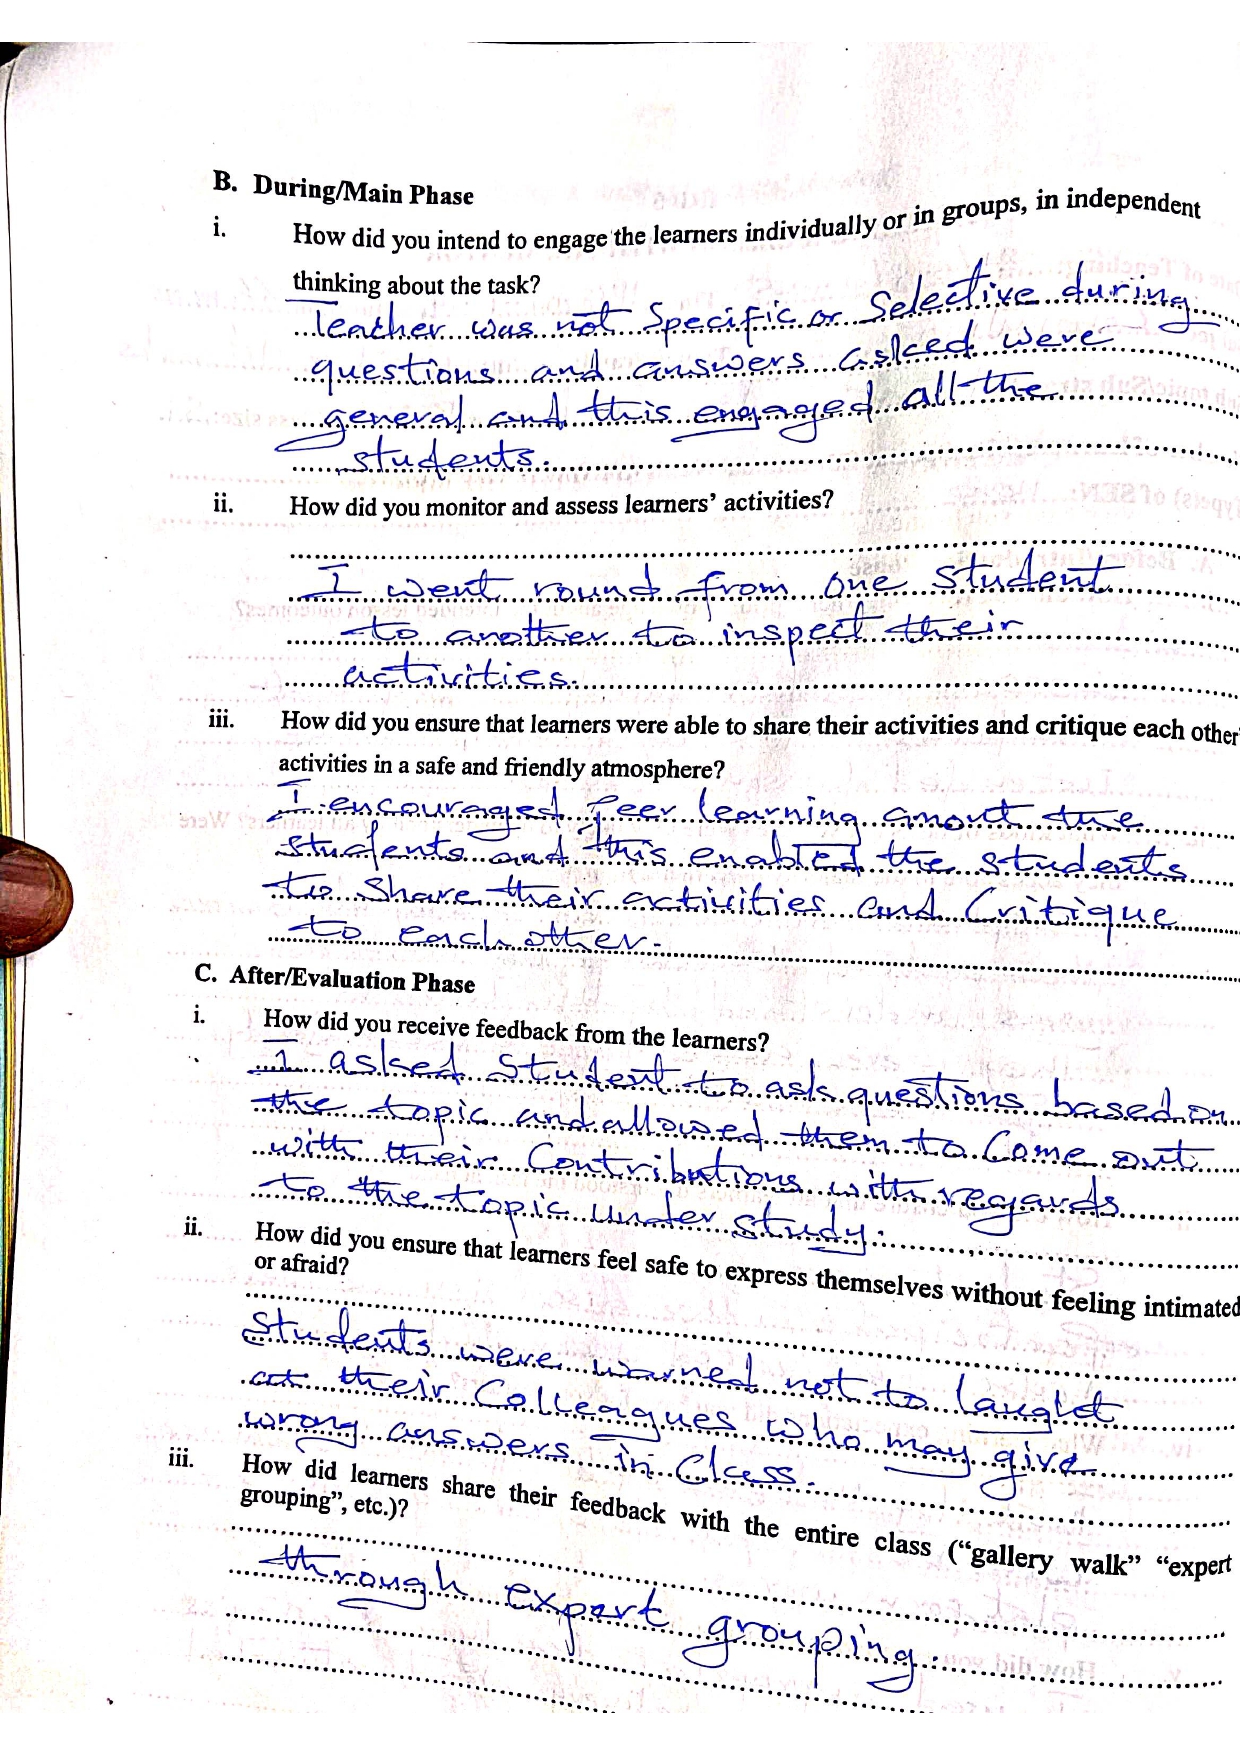 B. During/Main Phase
i. How did you intend to engage the learners individually or in groups, in independent
thinking about the task?
Teacher was not Specific or Selective during
questions and answers asked were
general and this engaged all the
students.
ii. How did you monitor and assess learners' activities?
I went round from one student
to another to inspect their
activities.
iii. How did you ensure that learners were able to share their activities and critique each other
activities in a safe and friendly atmosphere?
I encouraged peer learning amont the
students and this enabled the students
to share their activities and Critique
to each other.
C. After/Evaluation Phase
i. How did you receive feedback from the learners?
I asked Student to ask questions based on
the topic and allowed them to Come out
with their Contributions with regards
to the topic under study.
ii. How did you ensure that learners feel safe to express themselves without feeling intimated
or afraid?
Students were warned not to laught
at their Colleagues who may give
wrong answers in Class.
iii. How did learners share their feedback with the entire class (“gallery walk” “expert
grouping”, etc.)?
through expert grouping.